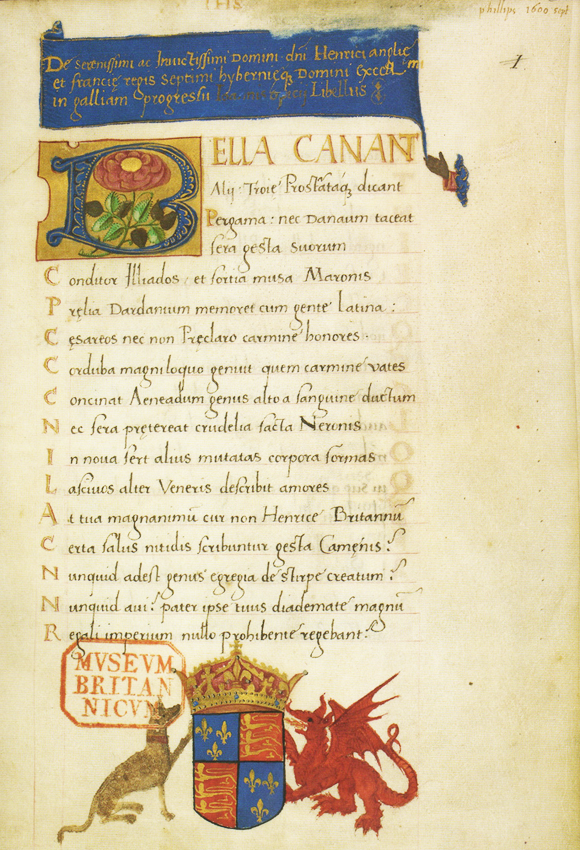 IHS
phillips 1600 sept
1
De Serenissimi ac Invictissimi Domini dñi Henrici anglię
et francię regis Septimi hybernięq Domini excell mi
in galliam progressu Libellus
BELLA CANANT
Alij Troię Prostratāq dicant
Pergama: nec Danaum taceat
fera gesta suorum
Conditor Illiados et fortia musa Maronis
Pręlia Dardanium memoret cum gente Latina:
Cęsareos nec non Pręclaro carmine honores
Corduba magniloquo genuit quem carmine vates
Concinat Aeneadum genus alto a sanguine ductum
Nec fera prętereat crudelia facta Neronis
In nova fert alius mutatas corpora formas
Lascivos alter Veneris describit amores
At tua magnanimū cur non Henrice Britannū
Certa salus nitidis scribuntur gesta Camęnis?
Nunquid adest genus egregia de stirpe creatum?
Nunquid avi? pater ipse tuus diademate magnū
Regali imperium nullo prohibente regebant?
MVSEVM
BRITAN
NICVM